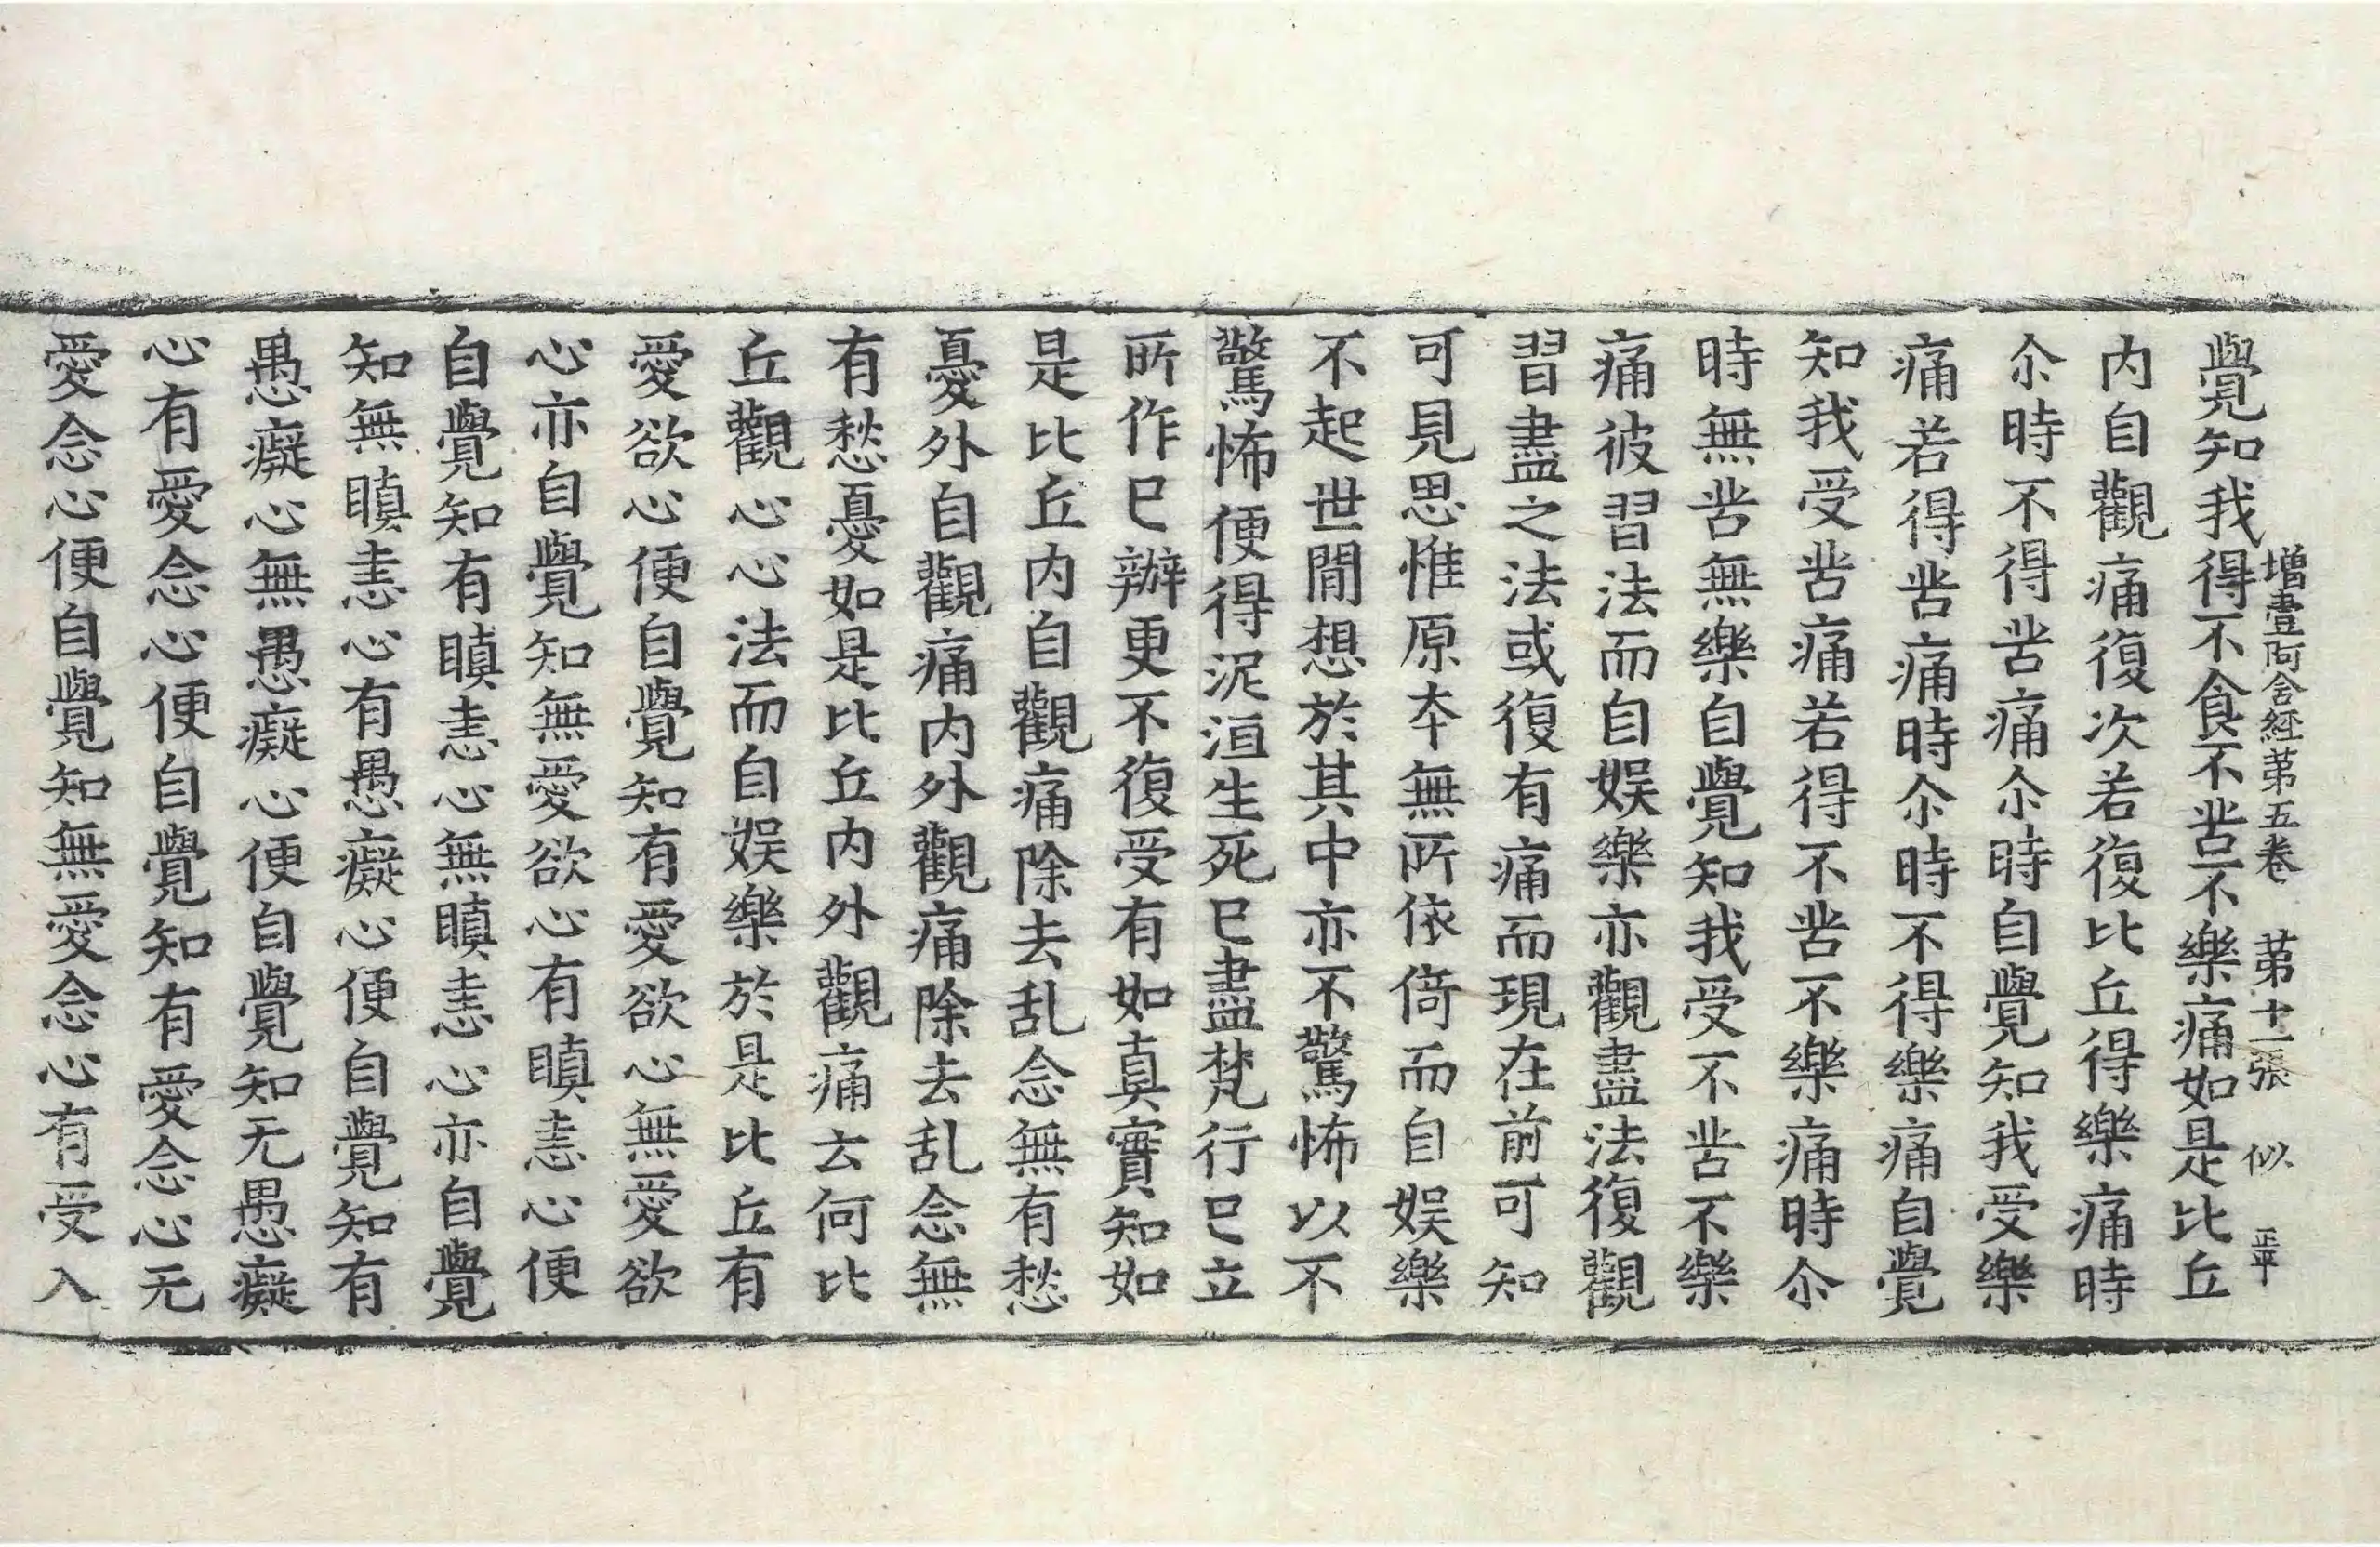 增壹阿含經苐五卷 苐十一張 似 正平
覺知我得不食不苦不樂痛如是比丘
内自觀痛復次若復比丘得樂痛時
尒時不得苦痛尒時自覺知我受樂
痛若得苦痛時尒時不得樂痛自覺
知我受苦痛若得不苦不樂痛時尒
時無苦無樂自覺知我受不苦不樂
痛彼習法而自娛樂亦觀盡法復觀
習盡之法或復有痛而現在前可知
可見思惟原夲無所依倚而自娛樂
不起世閒想於其中亦不驚怖以不
驚怖便得泥洹生死已盡梵行已立
所作已辦更不復受有如真實知如
是比丘内自觀痛除去乱念無有愁
憂外自觀痛内外觀痛除去乱念無
有愁憂如是比丘内外觀痛云何比
丘觀心心法而自娛樂於是比丘有
愛欲心便自覺知有愛欲心無愛欲
心亦自覺知無愛欲心有瞋恚心便
自覺知有瞋恚心無瞋恚心亦自覺
知無瞋恚心有愚癡心便自覺知有
愚癡心無愚癡心便自覺知无愚癡
心有愛念心便自覺知有愛念心无
愛念心便自覺知無愛念心有受入